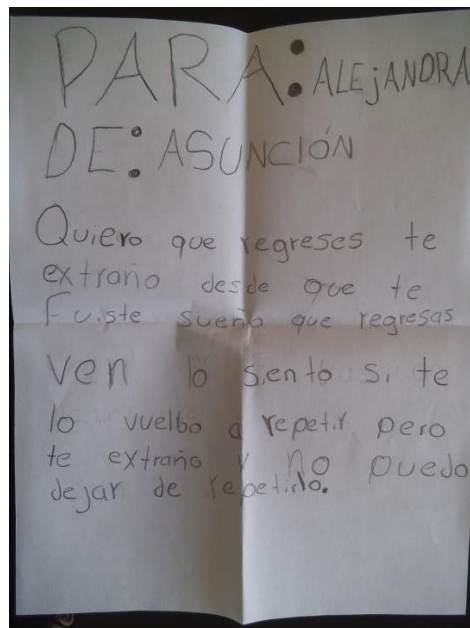 PARA: ALEjANDRA
DE: ASUNCIÓN
Quiero que regreses te
extraño desde que te
Fuiste sueño que regresas
ven lo siento si te
lo vuelbo a repetir pero
te extraño y no puedo
dejar de repetirlo.